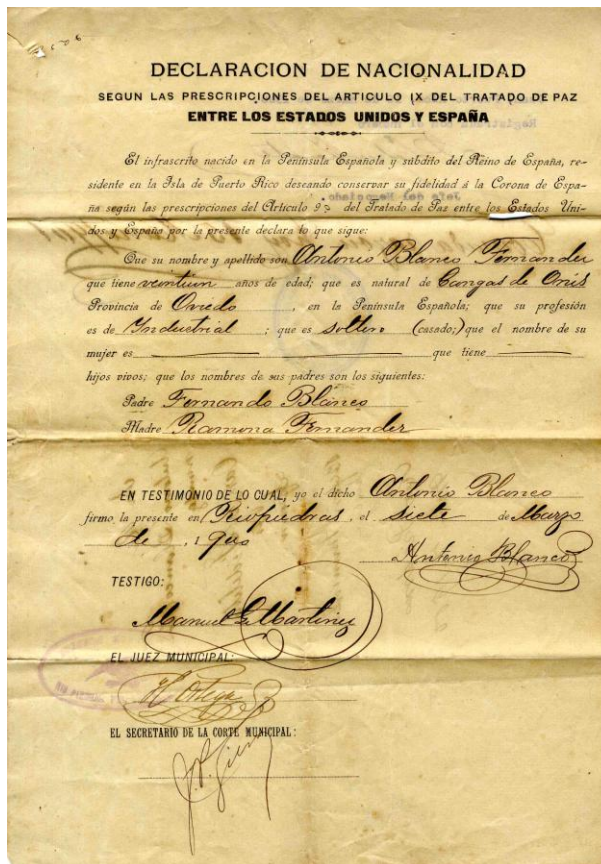 DECLARACION DE NACIONALIDAD
SEGUN LAS PRESCRIPCIONES DEL ARTICULO IX DEL TRATADO DE PAZ
ENTRE LOS ESTADOS UNIDOS Y ESPAÑA
El infrascrito nacido en la Península Española y súbdito del Reino de España, re-
sidente en la Isla de Puerto Rico deseando conservar su fidelidad á la Corona de Espa-
ña según las prescripciones del Artículo 9º del Tratado de Paz entre los Estados Uni-
dos y España por la presente declara lo que sigue:
Que su nombre y apellido son Antonio Blanco Fernandez
que tiene veintiun años de edad; que es natural de Cangas de Onis
Provincia de Oviedo, en la Península Española; que su profesión
es de Industrial; que es soltero (casado;) que el nombre de su
mujer es que tiene
hijos vivos; que los nombres de sus padres son los siguientes:
Padre Fernando Blanco
Madre Ramona Fernandez
EN TESTIMONIO DE LO CUAL, yo el dicho Antonio Blanco
firmo la presente en Riopiedras, el siete de Marzo
de 1900
Antonio Blanco
TESTIGO:
Manuel G Martinez
EL JUEZ MUNICIPAL:
EL SECRETARIO DE LA CORTE MUNICIPAL: